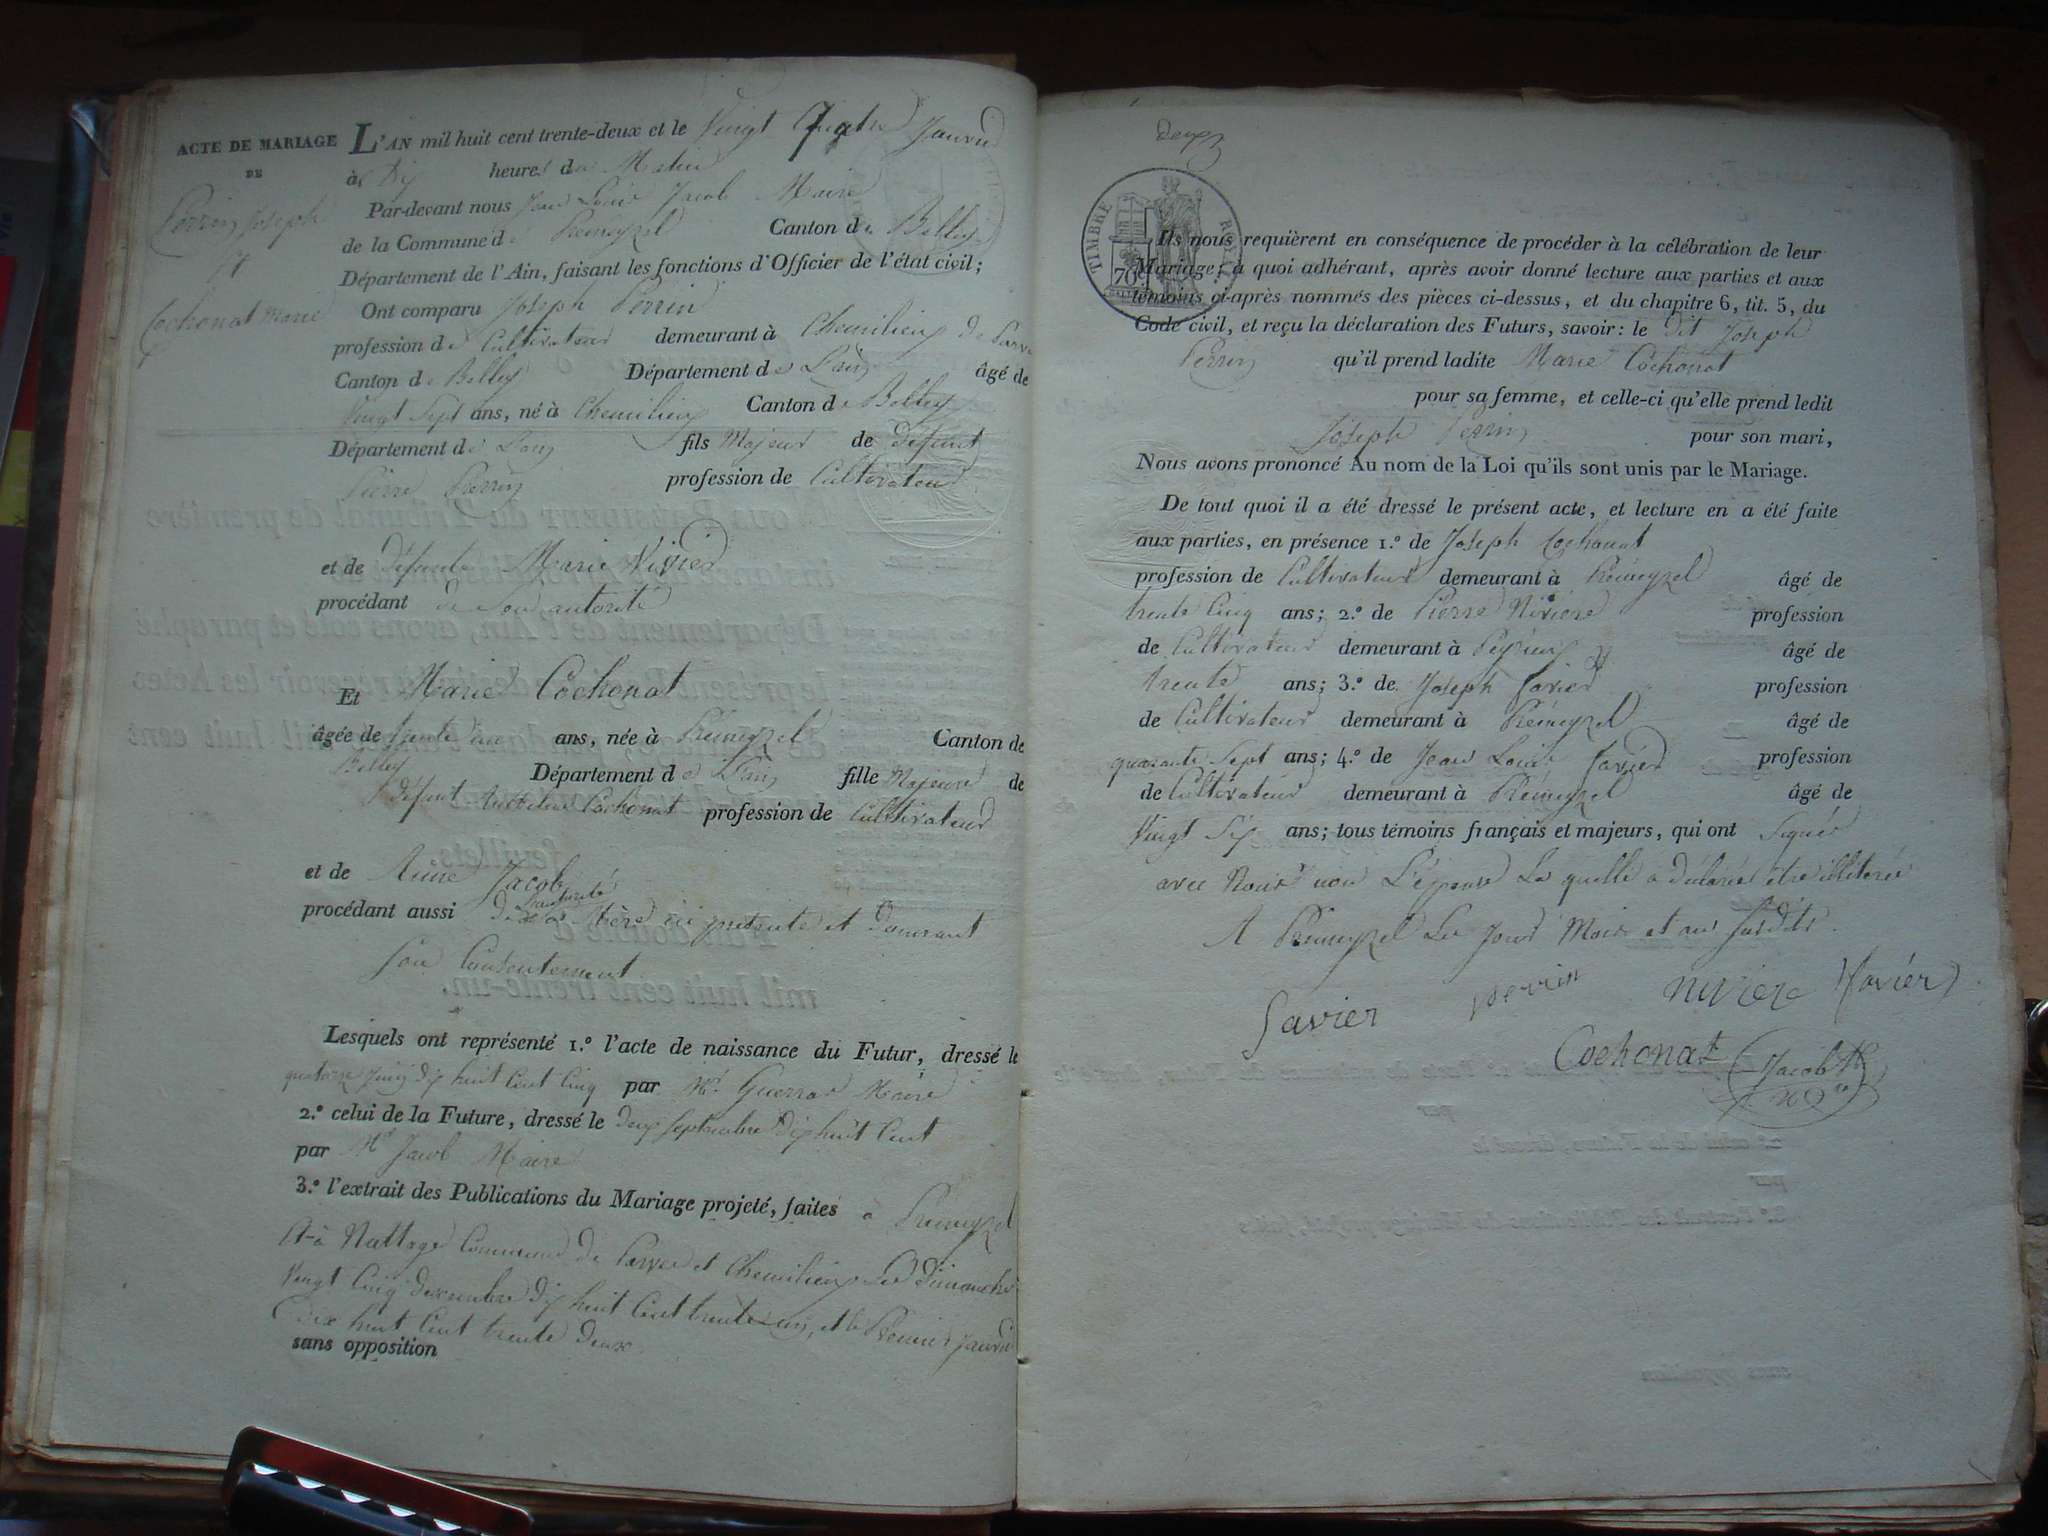 ACTE DE MARIAGE
DE
Perrin Joseph
et
Cochonat Marie
L'AN mil huit cent trente-deux et le Vingt Quatre Janvier
à dix heures du Matin
Par-devant nous Jean Louis Jacob Maire
de la Commune de Prémeyzel Canton de Belley
Département de l'Ain, faisant les fonctions d'Officier de l'état civil;
Ont comparu Joseph Perrin
profession de Cultivateur demeurant à Chemilieu de Parve
Canton de Belley Département de L'ain âgé de
Vingt Sept ans, né à Chemilieu Canton de Belley
Département de L'ain fils Majeur de défunt
Pierre Perrin profession de Cultivateur
et de défunte Marie
procédant de Son autorité
Et Marie Cochonat
âgée de trente un ans, née à Prémeyzel Canton de
Belley Département de L'ain fille Majeure de
défunt Anthelme Cochonat profession de Cultivateur
et de Anne Jacob
procédant aussi de L'autorité de sa Mère ici présente et donnant
Son Consentement
Lesquels ont représenté 1.º l'acte de naissance du Futur, dressé le
quatorze juin dix huit Cent Cinq par Mr Guerraz Maire
2.º celui de la Future, dressé le deux Septembre dix huit Cent
par Mr Jacob Maire
3.º l'extrait des Publications du Mariage projeté, faites à Prémeyzel
et à Nattage Commune de Parve et Chemilieu Les dimanche
Vingt Cinq décembre dix huit Cent trente un, et le Premier Janvier
dix huit Cent trente deux
sans opposition
deux
TIMBRE ROYAL
70
Ils nous requièrent en conséquence de procéder à la célébration de leur
Mariage; à quoi adhérant, après avoir donné lecture aux parties et aux
témoins ci-après nommés des pièces ci-dessus, et du chapitre 6, tit. 5, du
Code civil, et reçu la déclaration des Futurs, savoir: le dit Joseph
Perrin qu'il prend ladite Marie Cochonat
pour sa femme, et celle-ci qu'elle prend ledit
Joseph Perrin pour son mari,
Nous avons prononcé Au nom de la Loi qu'ils sont unis par le Mariage.
De tout quoi il a été dressé le présent acte, et lecture en a été faite
aux parties, en présence 1.º de Joseph Cochonat
profession de Cultivateur demeurant à Prémeyzel âgé de
trente Cinq ans; 2.º de Pierre Nivière profession
de Cultivateur demeurant à Peyrieu âgé de
trente ans; 3.º de Joseph Savier profession
de Cultivateur demeurant à Prémeyzel âgé de
quarante Sept ans; 4.º de Jean Louis Savier profession
de Cultivateur demeurant à Prémeyzel âgé de
Vingt Six ans; tous témoins français et majeurs, qui ont Signés
avec Nous non L'épouse La quelle a déclaré être illiterée
A Prémeyzel Les Jour Mois et an susdits.
Savier perrin niviere Savier
Cochonat Jacob